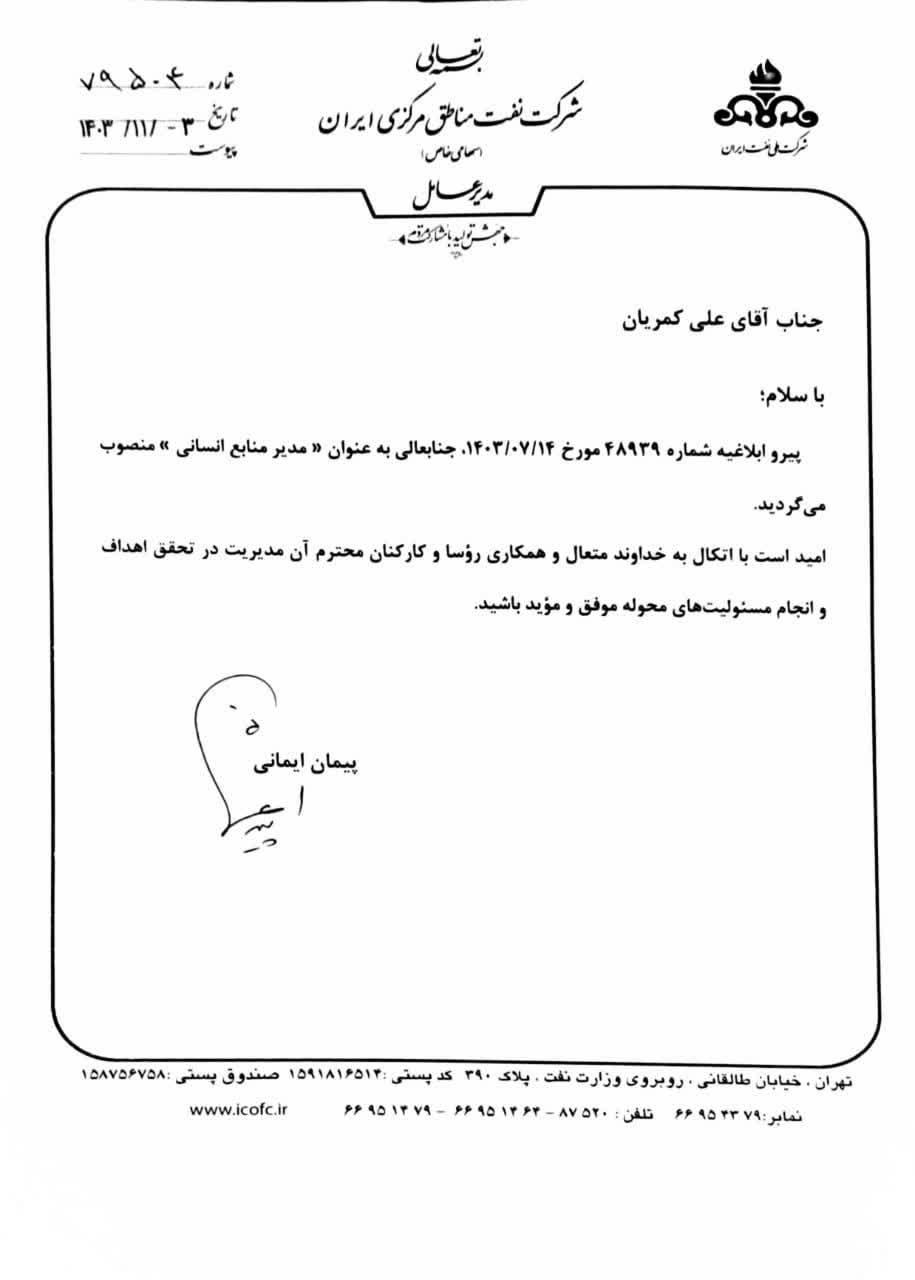 بسمه تعالی
شرکت نفت مناطق مرکزی ایران
(سهامی خاص)
شرکت ملی نفت ایران
شماره ۷۹۵۰۴
تاریخ ۱۴۰۳/۱۱/۰۳
پیوست
مدیرعامل
جهش تولید با مشارکت مردم
جناب آقای علی کمریان
با سلام؛
پیرو ابلاغیه شماره ۴۸۹۳۹ مورخ ۱۴۰۳/۰۷/۱۴، جنابعالی به عنوان « مدیر منابع انسانی » منصوب
می‌گردید.
امید است با اتکال به خداوند متعال و همکاری رؤسا و کارکنان محترم آن مدیریت در تحقق اهداف
و انجام مسئولیت‌های محوله موفق و مؤید باشید.
پیمان ایمانی
تهران ، خیابان طالقانی ، روبروی وزارت نفت ، پلاک ۳۹۰ کد پستی :۱۵۹۱۸۱۶۵۱۴ صندوق پستی :۱۵۸۷۵۶۷۵۸
نمابر:۶۶ ۹۵ ۴۳ ۷۹ تلفن : ۸۷ ۵۲۰ – ۶۶ ۹۵ ۱۴ ۶۴ – ۶۶ ۹۵ ۱۴ ۷۹ www.icofc.ir